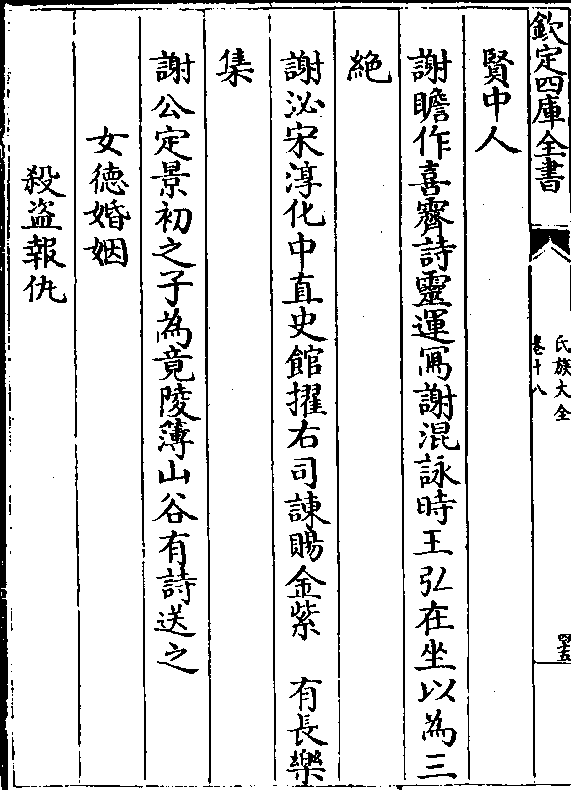 欽定四庫全書
氏族大全
卷十八
四十五
賢中人
謝瞻作喜霽詩靈運寫謝混詠時王弘在坐以為三
絶
謝泌宋淳化中直史館擢右司諫賜金紫　有長樂
集
謝公定景初之子為竟陵簿山谷有詩送之
女徳婚姻
殺盗報仇